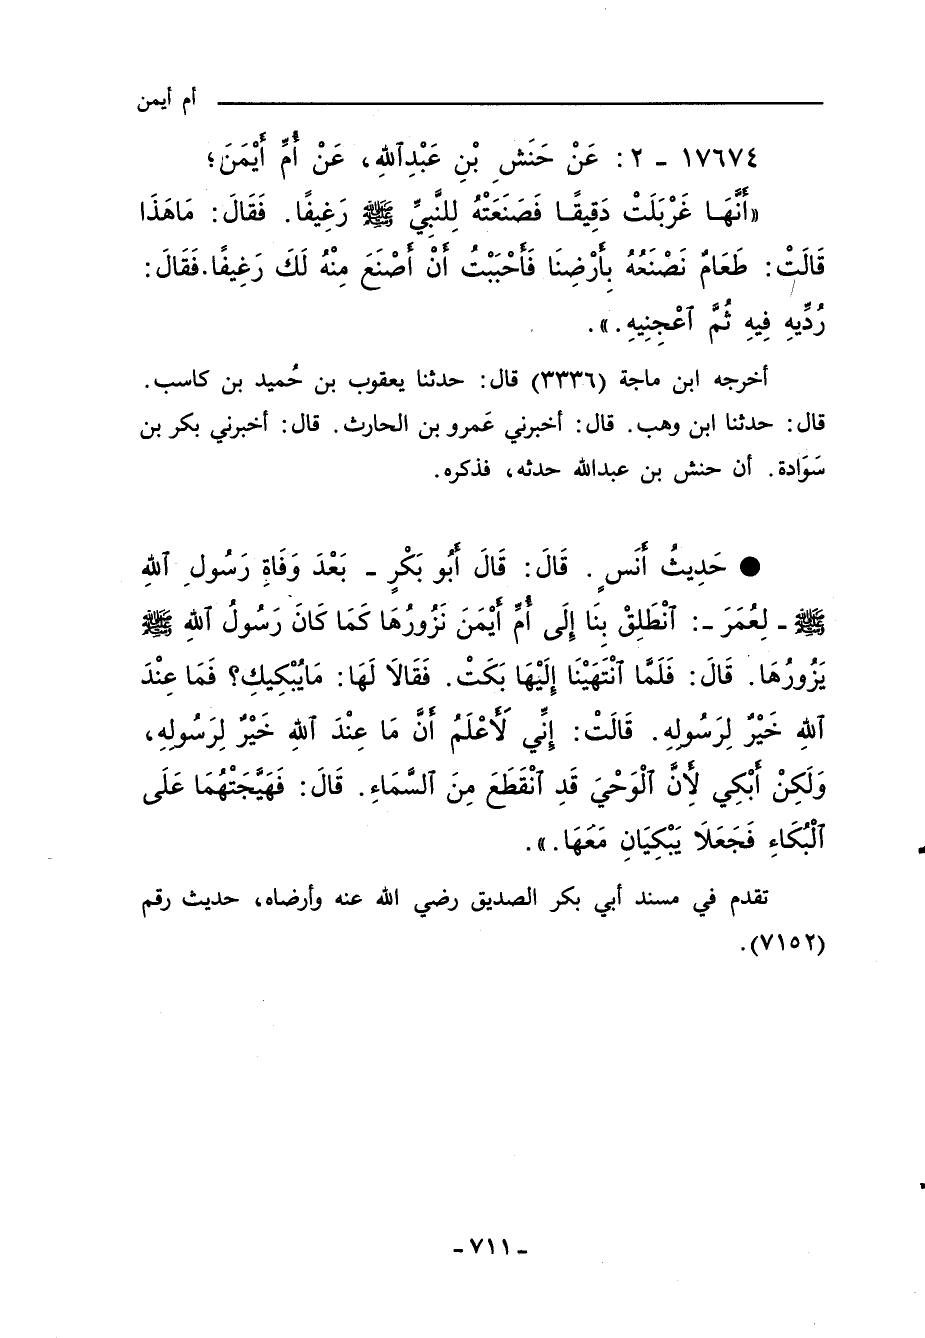 أم أيمن
١٧٦٧٤ - ٢: عَنْ حَنَشِ بْنِ عَبْدِٱللهِ، عَنْ أُمِّ أَيْمَنَ؛
«أَنَّهَا غَرْبَلَتْ دَقِيقًا فَصَنَعَتْهُ لِلنَّبِيِّ ﷺ رَغِيفًا. فَقَالَ: مَاهَذَا
قَالَتْ: طَعَامٌ نَصْنَعُهُ بِأَرْضِنَا فَأَحْبَبْتُ أَنْ أَصْنَعَ مِنْهُ لَكَ رَغِيفًا.فَقَالَ:
رُدِّيهِ فِيهِ ثُمَّ ٱعْجِنِيهِ.».
أخرجه ابن ماجة (٣٣٣٦) قال: حدثنا يعقوب بن حُميد بن كاسب.
قال: حدثنا ابن وهب. قال: أخبرني عَمرو بن الحارث. قال: أخبرني بكر بن
سَوَادة. أن حنش بن عبدالله حدثه، فذكره.
● حَدِيثُ أَنَسٍ. قَالَ: قَالَ أَبُو بَكْرٍ - بَعْدَ وَفَاةِ رَسُولِ ٱللهِ
ﷺ - لِعُمَرَ -: ٱنْطَلِقْ بِنَا إِلَى أُمِّ أَيْمَنَ نَزُورُهَا كَمَا كَانَ رَسُولُ ٱللهِ ﷺ
يَزُورُهَا. قَالَ: فَلَمَّا ٱنْتَهَيْنَا إِلَيْهَا بَكَتْ. فَقَالَا لَهَا: مَايُبْكِيكِ؟ فَمَا عِنْدَ
ٱللهِ خَيْرٌ لِرَسُولِهِ. قَالَتْ: إِنِّي لَأَعْلَمُ أَنَّ مَا عِنْدَ ٱللهِ خَيْرٌ لِرَسُولِهِ،
وَلَكِنْ أَبْكِي لِأَنَّ ٱلْوَحْيَ قَدِ ٱنْقَطَعَ مِنَ ٱلسَّمَاءِ. قَالَ: فَهَيَّجَتْهُمَا عَلَى
ٱلْبُكَاءِ فَجَعَلَا يَبْكِيَانِ مَعَهَا.».
تقدم في مسند أبي بكر الصديق رضي الله عنه وأرضاه، حديث رقم
(٧١٥٢).
- ٧١١ -